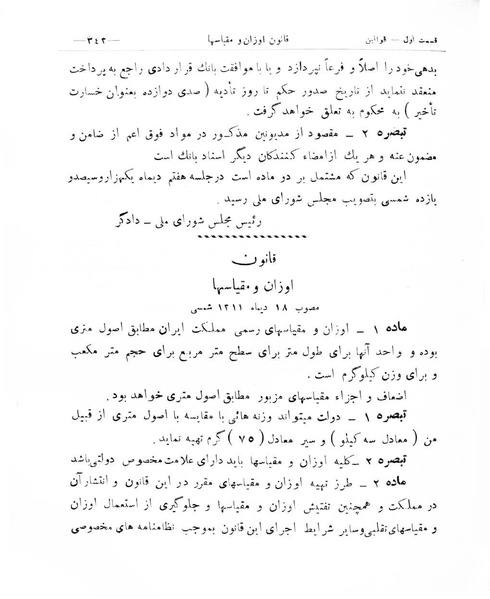 قسمت اول — قوانین
قانون اوزان و مقیاسها
—۳۴۲—
بدهی خود را اصلاً و فرعاً نپردازد و یا با موافقت بانك قرار دادی راجع به پرداخت
منعقد ننماید از تاریخ صدور حکم تا روز تأدیه ( صدی دوازده بعنوان خسارت
تأخیر ) به محکوم به تعلق خواهد گرفت .
تبصره ۲ — مقصود از مدیونین مذکور در مواد فوق اعم از ضامن و
مضمون عنه و هر یك از امضاء کنندگان دیگر اسناد بانك است
این قانون که مشتمل بر دو ماده است در جلسه هفتم دیماه یکهزار و سیصد و
یازده شمسی بتصویب مجلس شورای ملی رسید .
رئیس مجلس شورای ملی — دادگر
قانون
اوزان و مقیاسها
مصوب ۱۸ دیماه ۱۳۱۱ شمسی
ماده ۱ — اوزان و مقیاسهای رسمی مملکت ایران مطابق اصول متری
بوده و واحد آنها برای طول متر برای سطح متر مربع برای حجم متر مکعب
و برای وزن کیلوگرم است .
اضعاف و اجزاء مقیاسهای مزبور مطابق اصول متری خواهد بود .
تبصره ۱ — دولت میتواند وزنه هائی با مقایسه با اصول متری از قبیل
من ( معادل سه کیلو ) و سیر معادل ( ۷۵ ) گرم تهیه نماید .
تبصره ۲ — کلیه اوزان و مقیاسها باید دارای علامت مخصوص دولتی باشد
ماده ۲ — طرز تهیه اوزان و مقیاسهای مقرر در این قانون و انتشار آن
در مملکت و همچنین تفتیش اوزان و مقیاسها و جلوگیری از استعمال اوزان
و مقیاسهای تقلبی و سایر شرایط اجرای این قانون بموجب نظامنامه های مخصوصی